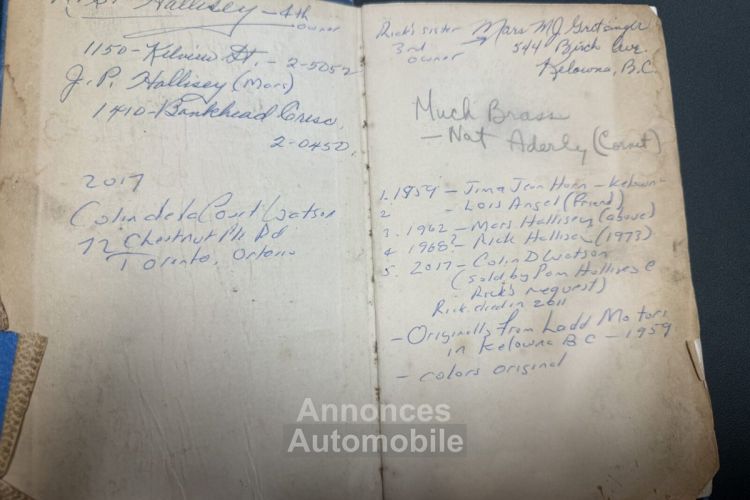 Hallisey - 4th
owner
1150 - Kelview St. - 2-5052
J. P. Hallisey (Mars)
1410 - Bankhead Cresc.
2-0450.
2017
Colin de la Court Watson
72 Chestnut Pk Rd
Toronto, Ontario
Rick's sister Mars MJ Gretsinger
3rd 544 Birch Ave.
owner Kelowna, B.C.
Much Brass
- Nat Aderly (Cornet)
1. 1959 - Jim & Jean Horn - Kelowna
2 - Lois Angel (Friend)
3. 1962 - Mars Hallisey (above)
4 1968? - Rick Hallisey (1973)
5. 2017 - Colin D Watson
(sold by Pam Hallisey @
Rick's request)
Rick died in 2011
- Originally from Ladd Motors
in Kelowna BC - 1959
- colors original
Annonces
Automobile